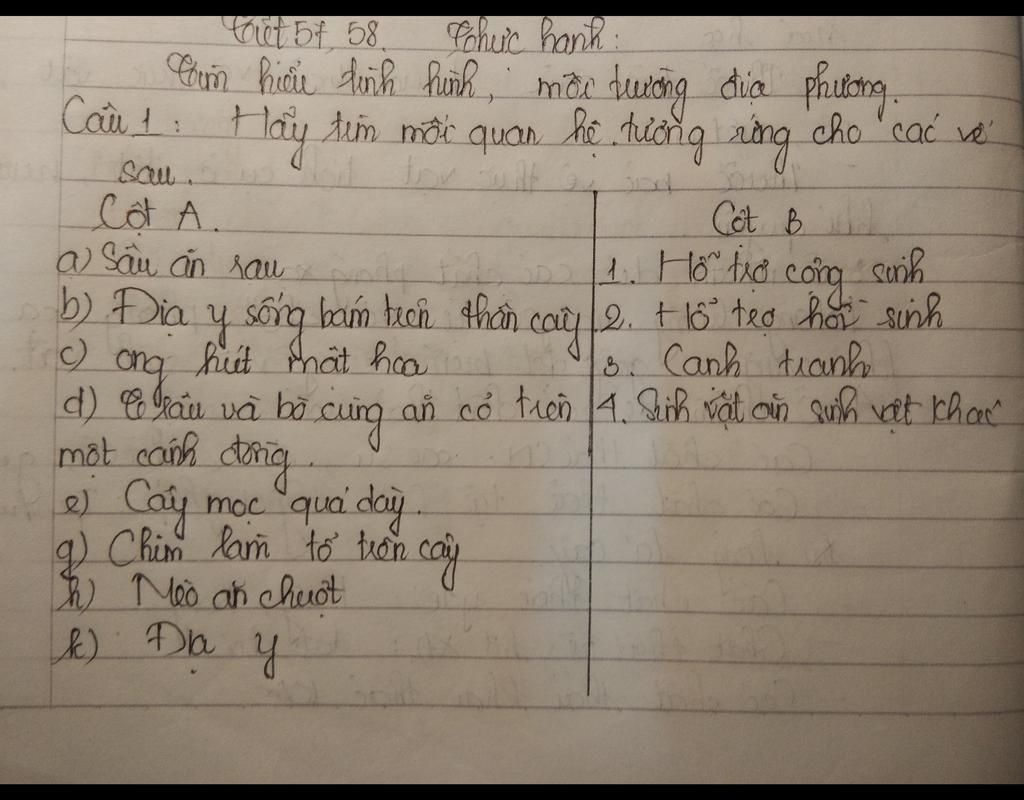 Tiết 57, 58. Thực hành:
Tìm hiểu tình hình, môi trường địa phương.
Câu 1: Hãy tìm mối quan hệ tương ứng cho các vế
sau.
Cột A.
a) Sâu ăn rau
b) Địa y sống bám trên thân cây
c) ong hút mật hoa
d) Trâu và bò cùng ăn cỏ trên
một cánh đồng.
e) Cây mọc quá dày.
g) Chim làm tổ trên cây
h) Mèo ăn chuột
k) Địa y
Cột B
1. Hỗ trợ cộng sinh
2. Hỗ trợ hội sinh
3. Cạnh tranh
4. Sinh vật ăn sinh vật khác